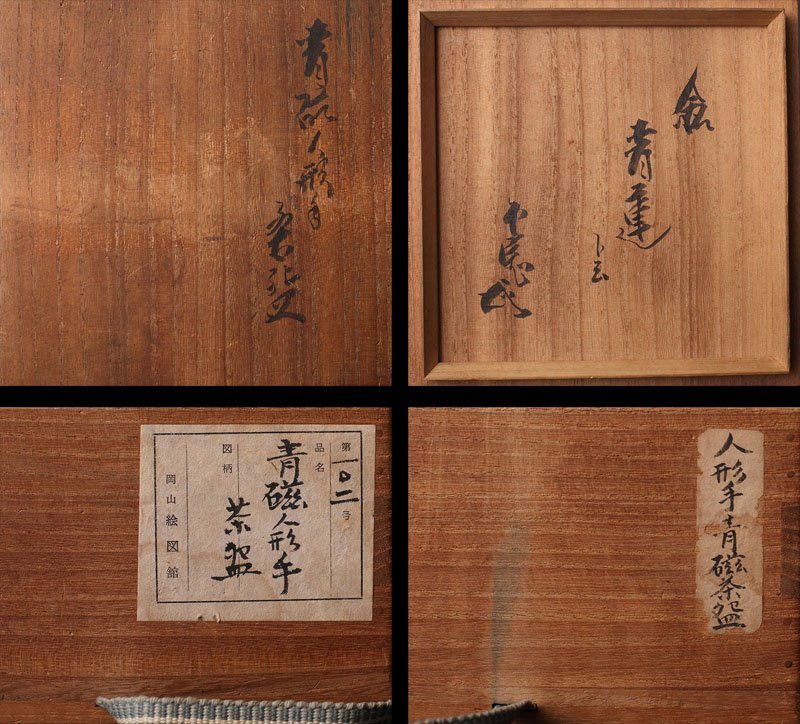 青磁人形手
茶盌
銘
青蓮
ト云
第一〇二号
品名
青磁人形手
図柄
茶盌
岡山絵図館
人形手青磁茶盌